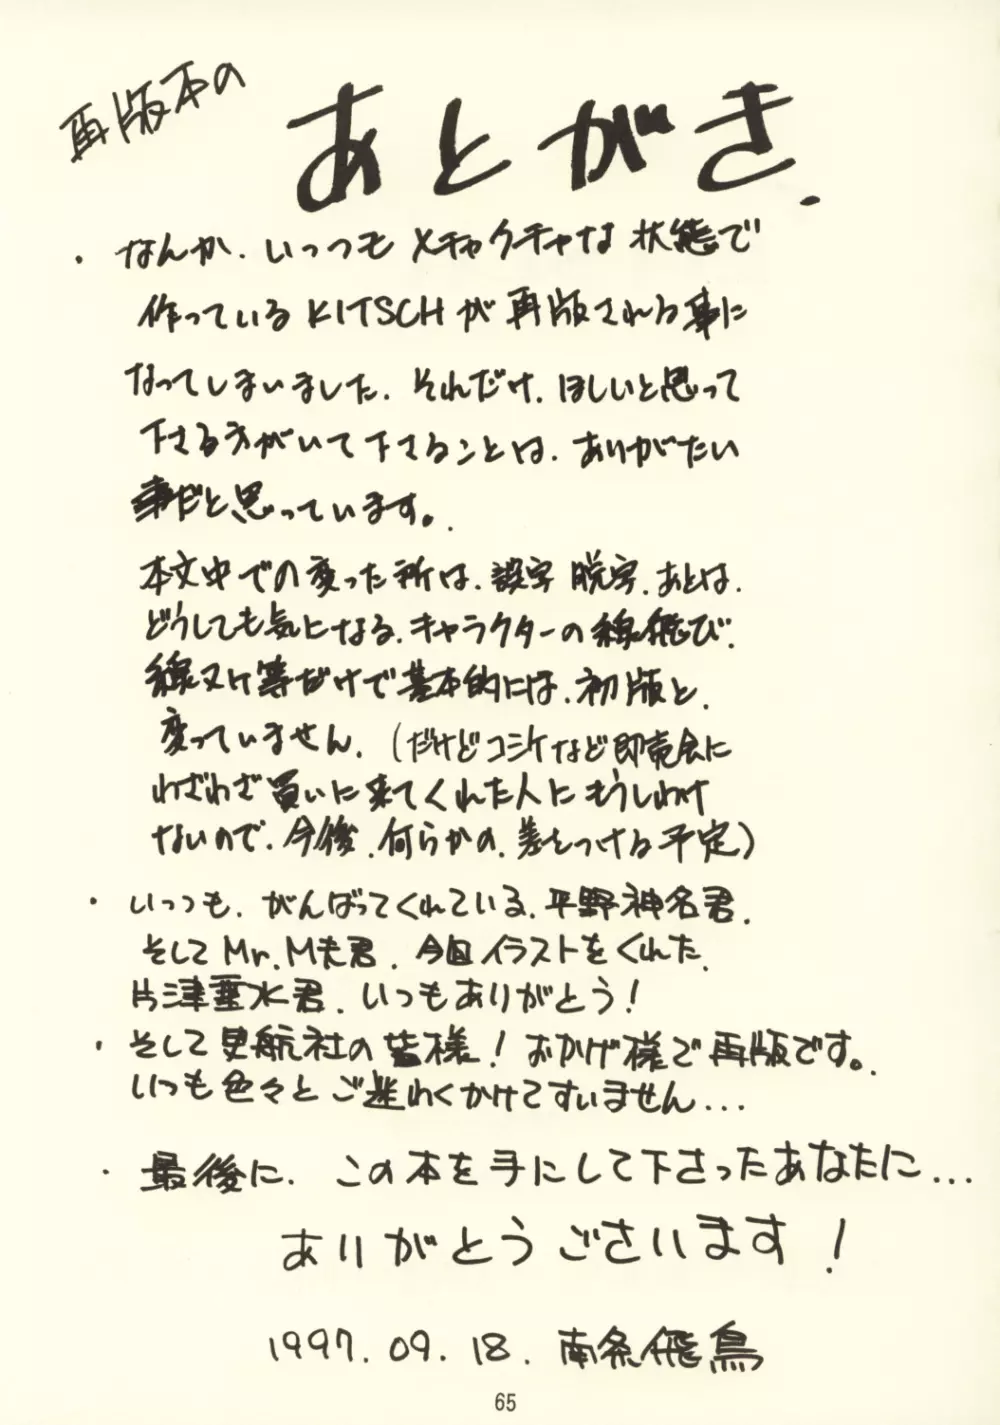 再版本の
あとがき.
・なんか、いっつもメチャクチャな状態で
作っているKITSCHが再版される事に
なってしまいました。それだけ、ほしいと思って
下さる方がいて下さることは、ありがたい
事だと思っています。
本文中での変った所は、誤字脱字、あとは、
どうしても気になる、キャラクターの線飛び、
線ヌケ等だけで基本的には、初版と、
変っていません。(だけどコミケなど即売会に
わざわざ買いに来てくれた人にもうしわけ
ないので、今後、何らかの、差をつける予定)
・いっつも、がんばってくれている、平野神名君、
そしてMr.M夫君、今回イラストをくれた、
片津亜水君、いつもありがとう!
・そして 航社の皆様!おかげ様で再版です。
いつも色々とご迷わくかけてすいません...
・最後に、この本を手にして下さったあなたに...
ありがとうございます!
1997.09.18.南条飛鳥
65